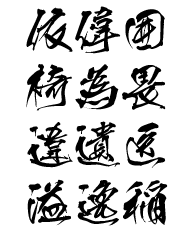 依偉囲
椅為畏
違遺医
溢逸稲